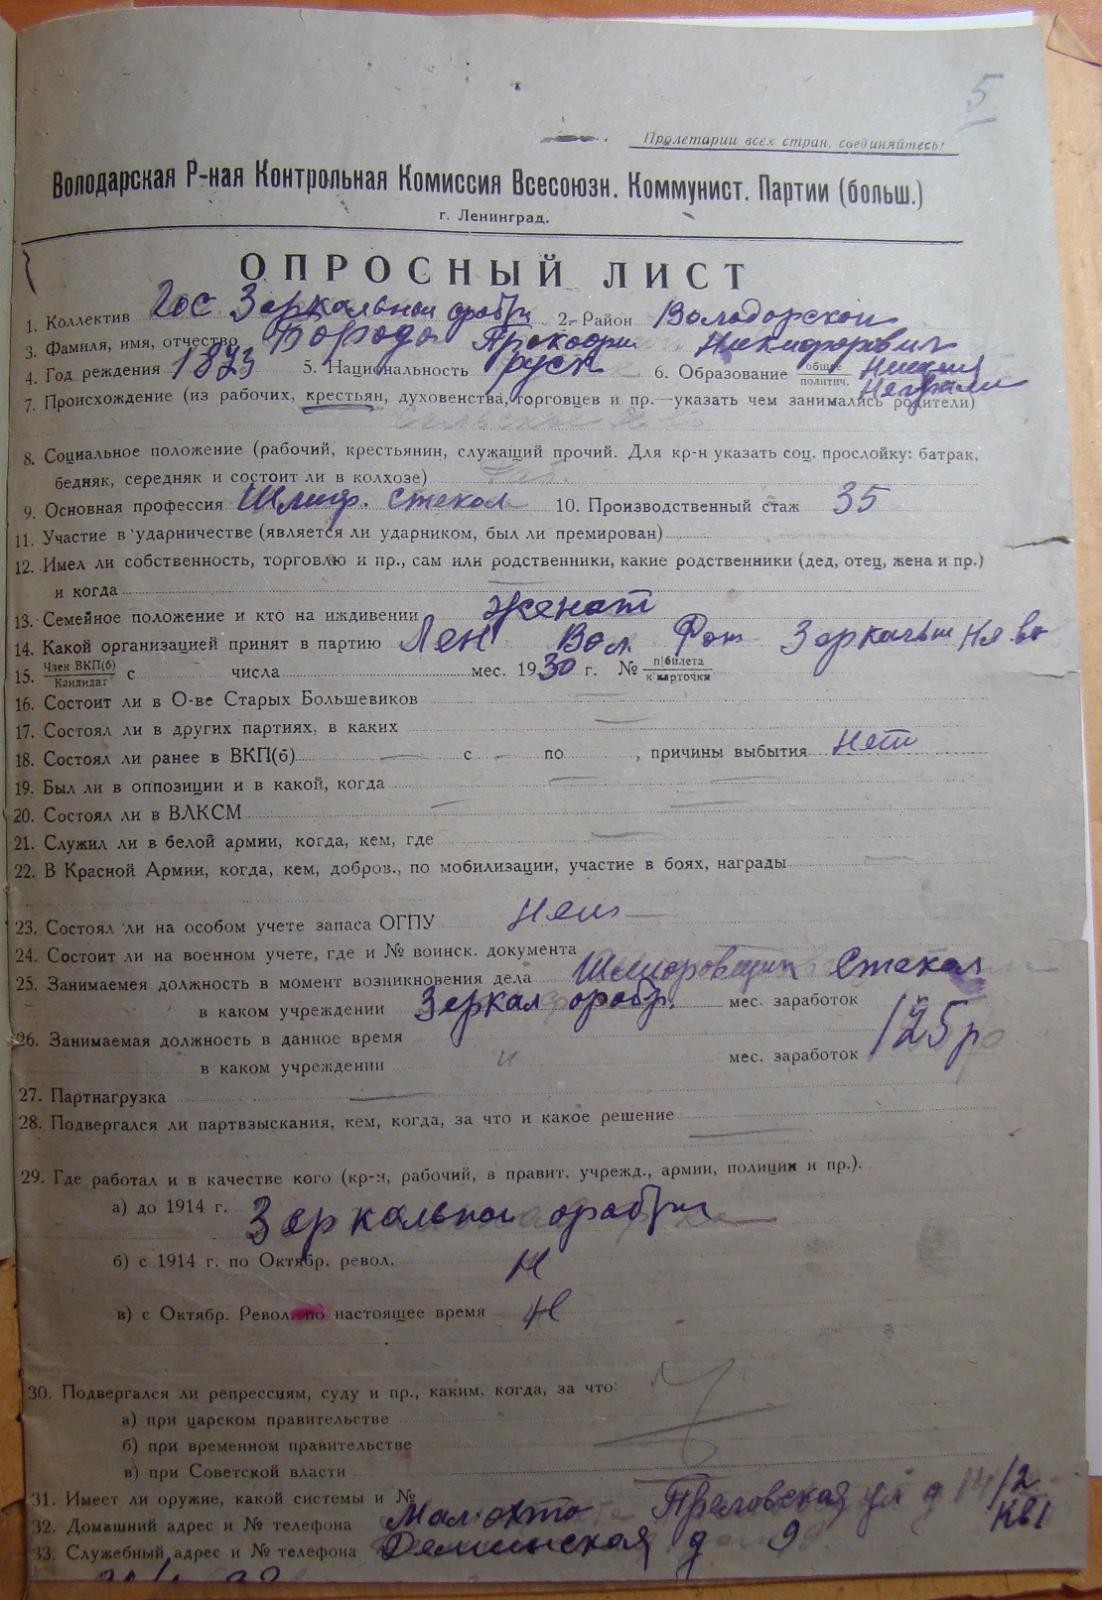 5
Пролетарии всех стран, соединяйтесь!
Володарская Р-ная Контрольная Комиссия Всесоюзн. Коммунист. Партии (больш.)
г. Ленинград.
ОПРОСНЫЙ ЛИСТ
1. Коллектив Гос Зеркальной фабри 2. Район Володорской
3. Фамилия, имя, отчество Борода Прокофри Никифорович
4. Год рождения 1873 5. Национальность руск 6. Образование общее политич. Нисшия
7. Происхождение (из рабочих, крестьян, духовенства, торговцев и пр.—указать чем занимались родители)
8. Социальное положение (рабочий, крестьянин, служащий прочий. Для кр-н указать соц. прослойку: батрак,
бедняк, середняк и состоит ли в колхозе) Раб.
9. Основная профессия Шлиф. стекол 10. Производственный стаж 35
11. Участие в ударничестве (является ли ударником, был ли премирован)
12. Имел ли собственность, торговлю и пр., сам или родственники, какие родственники (дед, отец, жена и пр.)
и когда
13. Семейное положение и кто на иждивении Женат
14. Какой организацией принят в партию Лен Вол. Зеркальн
15. Член ВКП(б) Кандидат с числа мес. 1930 г. № п|билета к|карточки
16. Состоит ли в О-ве Старых Большевиков
17. Состоял ли в других партиях, в каких —
18. Состоял ли ранее в ВКП(б) — с — по , причины выбытия Нет
19. Был ли в оппозиции и в какой, когда — —
20. Состоял ли в ВЛКСМ — —
21. Служил ли в белой армии, когда, кем, где —
22. В Красной Армии, когда, кем, добров., по мобилизации, участие в боях, награды —
23. Состоял ли на особом учете запаса ОГПУ Нет
24. Состоит ли на военном учете, где и № воинск. документа
25. Занимаемея должность в момент возникновения дела Шлифовщик Стекол
в каком учреждении Зеркал фабр. мес. заработок 125 р
26. Занимаемая должность в данное время
в каком учреждении и мес. заработок
27. Партнагрузка —
28. Подвергался ли партвзыскания, кем, когда, за что и какое решение —
29. Где работал и в качестве кого (кр-н, рабочий, в правит. учрежд., армии, полиции и пр.).
а) до 1914 г. Зеркальной фабри
б) с 1914 г. по Октябр. револ.
в) с Октябр. Револ. по настоящее время
30. Подвергался ли репрессиям, суду и пр., каким, когда, за что:
а) при царском правительстве
б) при временном правительстве
в) при Советской власти
31. Имеет ли оружие, какой системы и №
32. Домашний адрес и № телефона Мал. охта ул д 14/2 кв 1
33. Служебный адрес и № телефона Деминская д 9